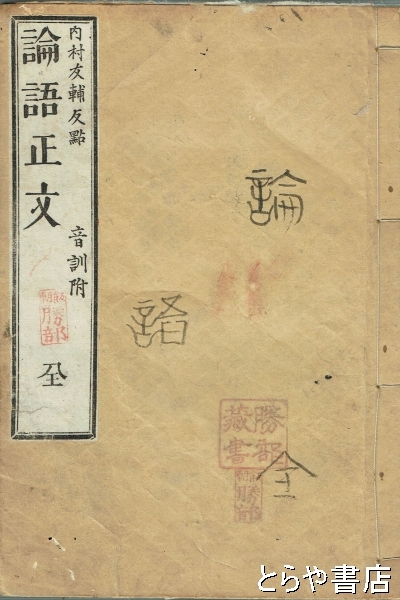 内村友輔反點
論語正文
音訓附
全
論
語
全
勝部
藏書
とらや書店